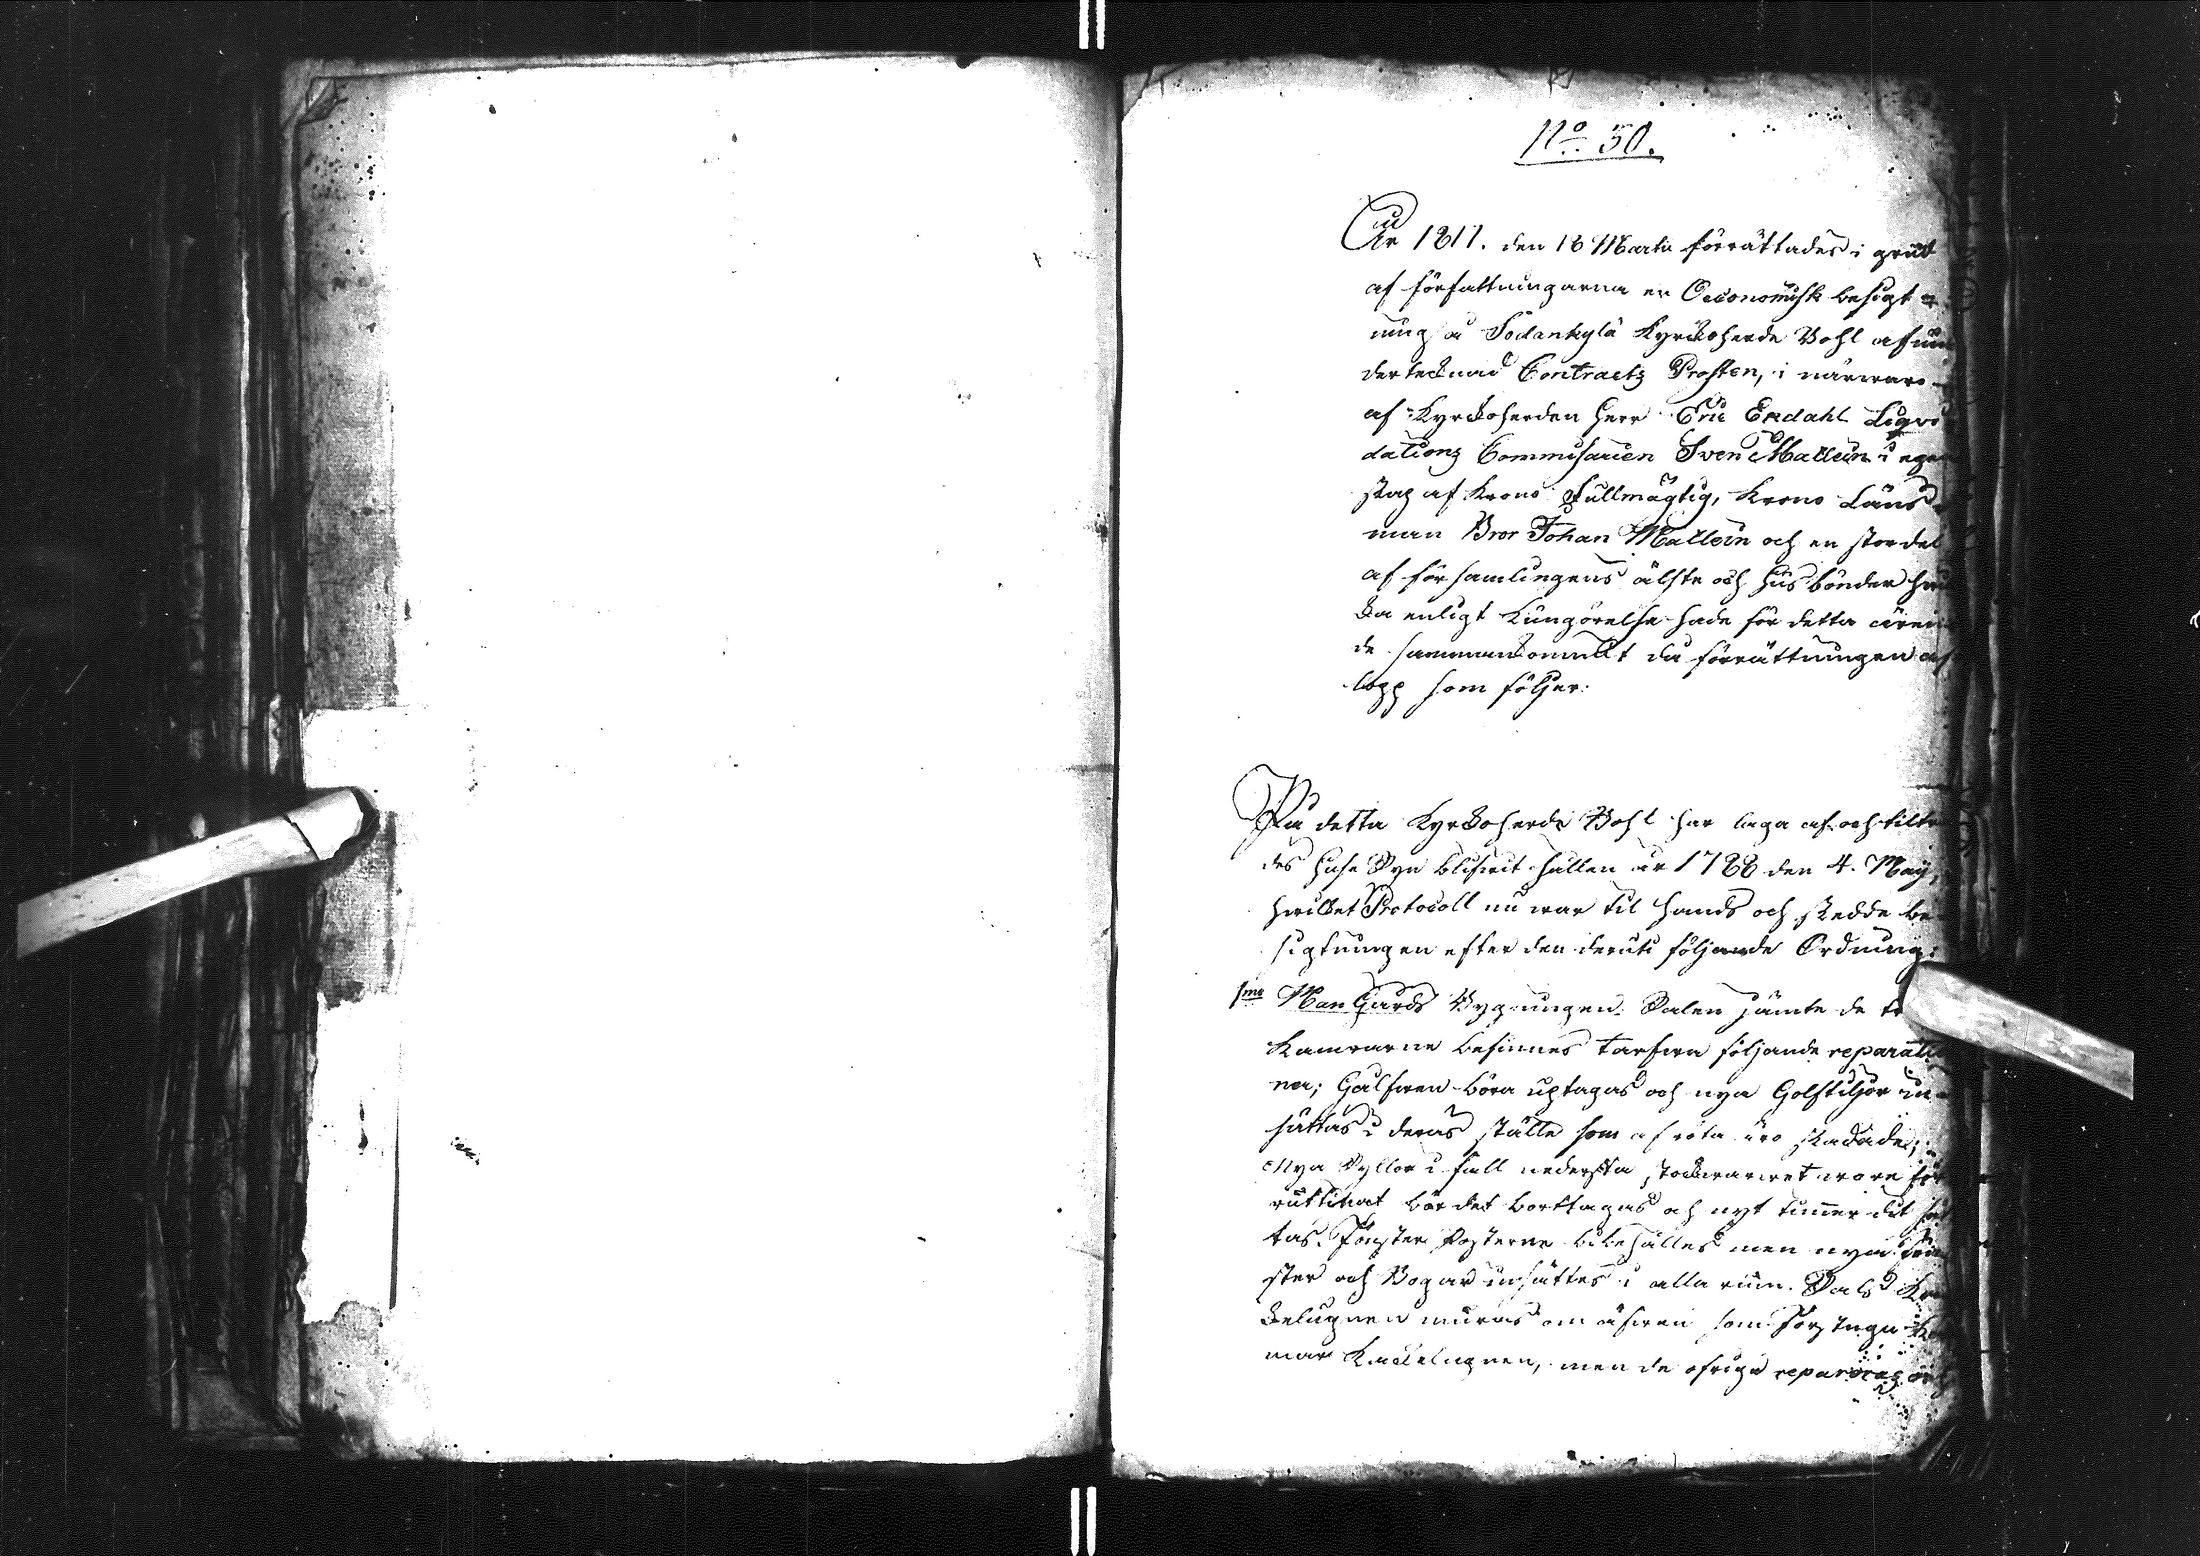 No 50.
År 1811. den 18 Martii förrättades i grud
af författningarna en Oeconomisk besigt
ning å Sodankylä Kyrckoherde Bohl af un
dertecknad Contracts Prosten, i närwaro
af Kyrckoherden herr Eric Ekdahl Liqvi
dations Commissarien Sven Mattein i egen
skap af Krono Fullmägtig, Krono Läns
man Bror Johan Mattein och en stor del
af församlingens älste och Husbönder hwil
cka enligt Kungörelse hade för detta ären
de sammankommit då förrättningen af
lopp som följer:
På detta Kyrckoherde Bohl har laga af och tilträ
des huse Syn blifwit hållen år 1788 den 4. Maij,
hwilket Protocoll nu war til hands och skedde be
sigtningen efter den deruti följande Ordning:
1mo Man Gårds Bygnungen. Salen jämte de
Kamrarne befinnes tarfwa följande reparatio
ner; Gålfwen böra uptagas och nya Golftiljor in
sättas i deras ställe som af röta äro skadade;
Nya Syllor i fall nedersta stockwarwet wore för
ruttinat bör det borttagas och nyt timer dit sät
tas. Fönster Posterne bibehålles men nya fön
ster och Bogar insättes i alla rum. Sals Ka
kelugnen muras om äfwen som Förstugu Ka
mar Kackelugnen, men de öfriga repareras